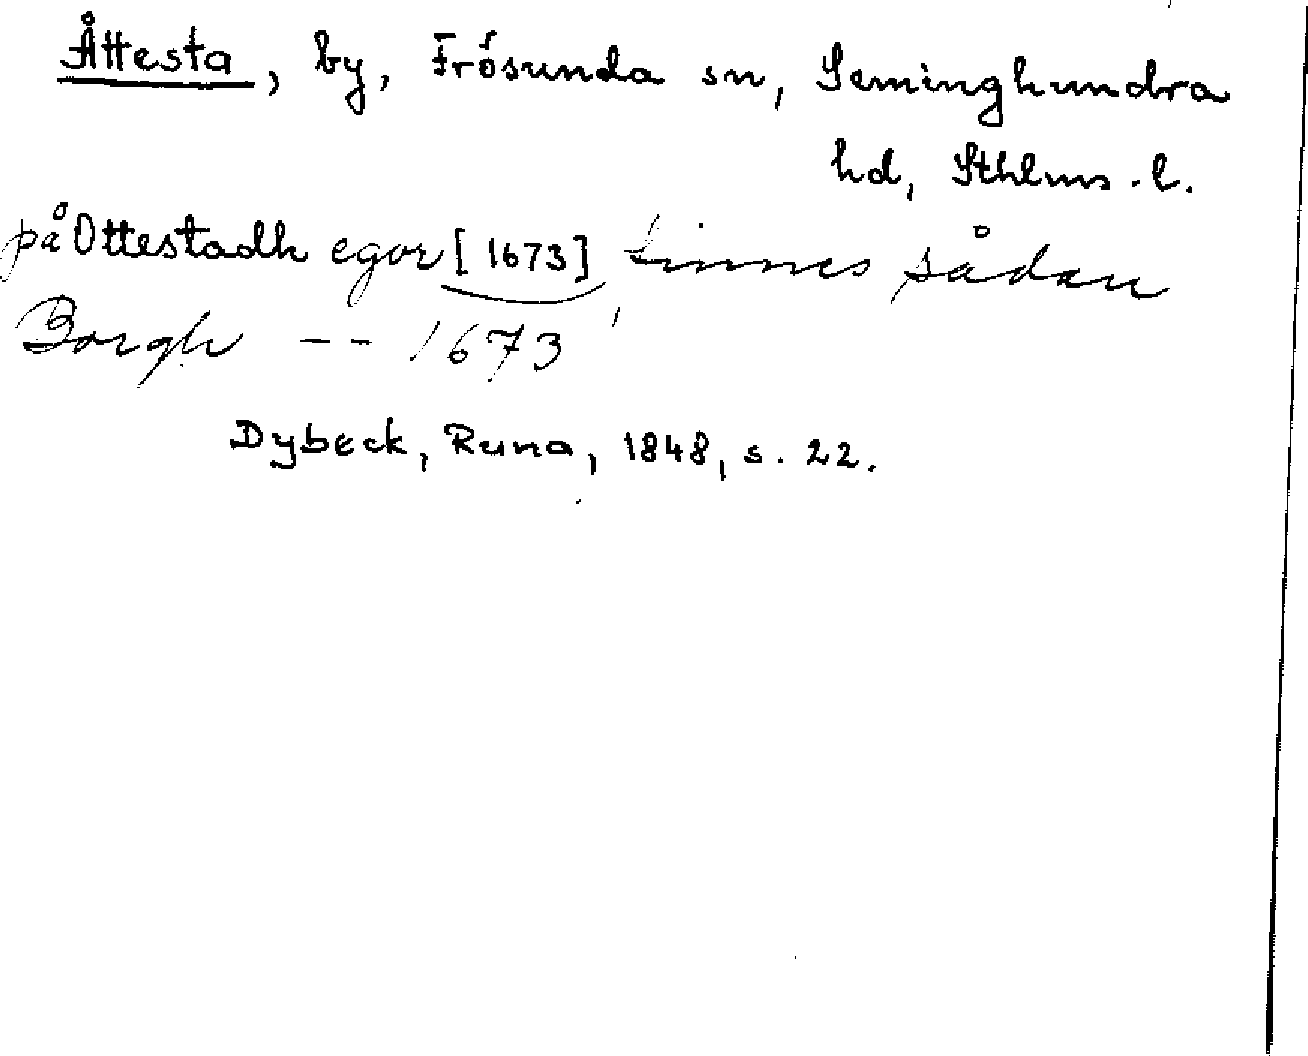 Åttesta, by, Frösunda sn, Seminghundra
hd, Sthlms. l.
på Ottestadh egor [1673] finnes sådan
Borgh -- 1673
Dybeck, Runa, 1848, s. 22.